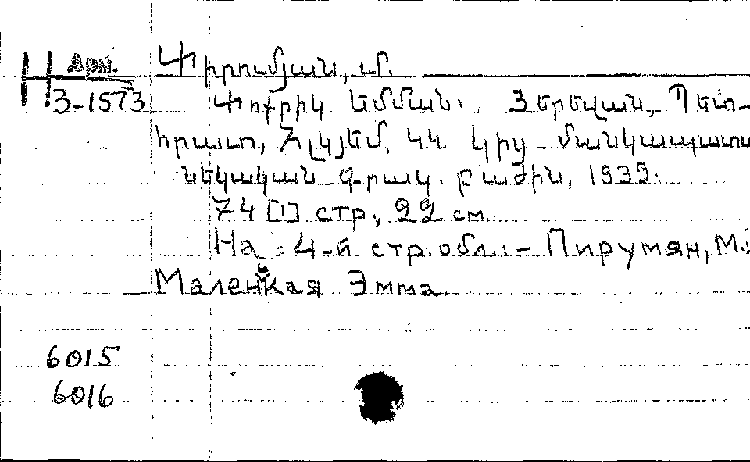 Н Арм.
3-1573
Փիրումյան, Մ.
Փոքրիկ Եմման. Յերեվան, Պետ-
հրատ, ՀԼԿՅԵՄ ԿԿ կից մանկապատա-
նեկական գրակ. բաժին, 1935.
74 [1] стр., 22 см
На 4-й стр. обл.: - Пирумян, М.
Маленькая Эмма.
6015
6016